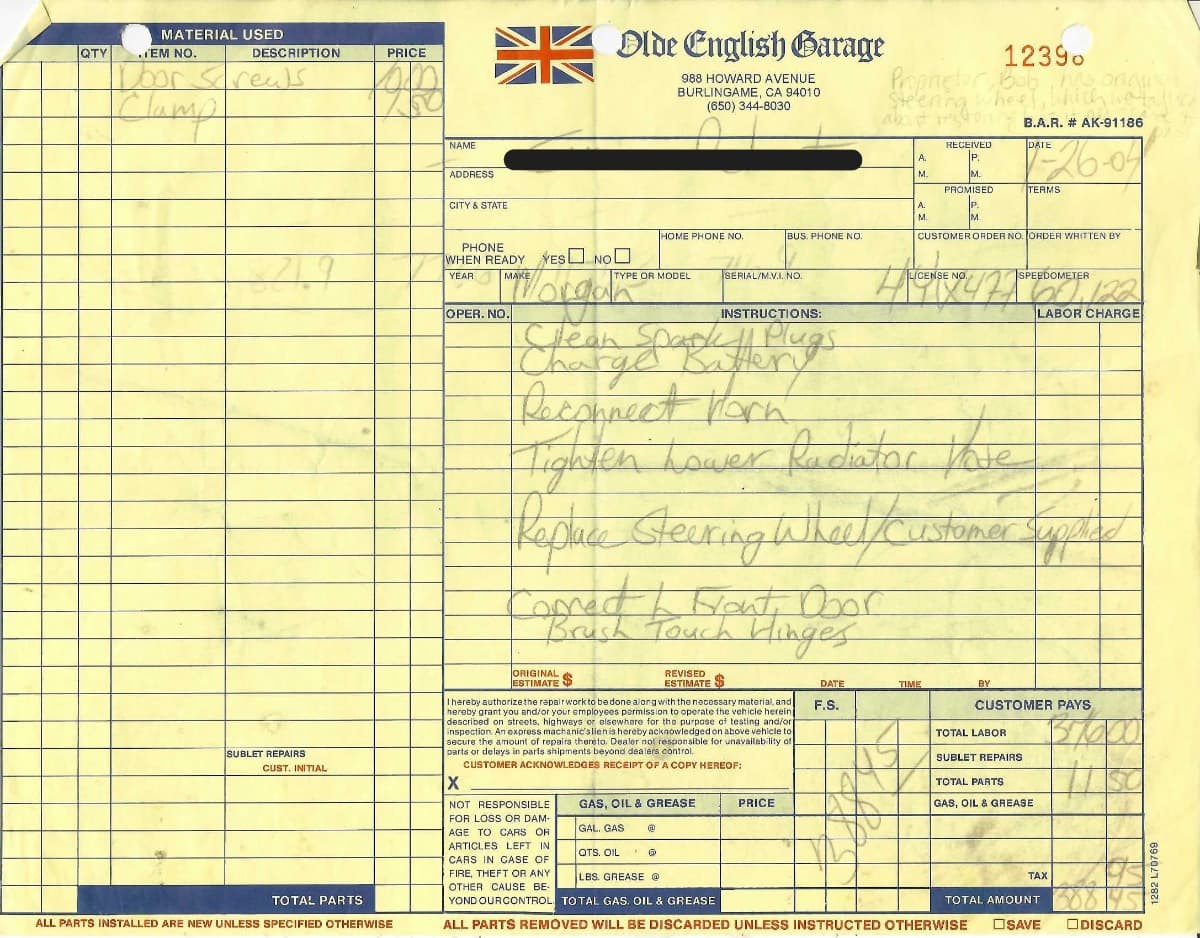 MATERIAL USED
QTY ITEM NO. DESCRIPTION PRICE
Door Screws
Clamp 1.50
SUBLET REPAIRS
CUST. INITIAL
TOTAL PARTS
ALL PARTS INSTALLED ARE NEW UNLESS SPECIFIED OTHERWISE
Olde English Garage
988 HOWARD AVENUE
BURLINGAME, CA 94010
(650) 344-8030
12398
Proprietor, Bob, has original
Steering wheel, which
B.A.R. # AK-91186
NAME
ADDRESS
CITY & STATE
RECEIVED
A. M. P. M.
PROMISED
A. M. P. M.
DATE
1-26-04
TERMS
PHONE WHEN READY YES NO
HOME PHONE NO. BUS. PHONE NO. CUSTOMER ORDER NO. ORDER WRITTEN BY
YEAR MAKE TYPE OR MODEL SERIAL/M.V.I. NO. LICENSE NO. SPEEDOMETER
Morgan 60,122
OPER. NO. INSTRUCTIONS: LABOR CHARGE
Clean Spark Plugs
Charge Battery
Reconnect Horn
Tighten Lower Radiator Hose
Replace Steering Wheel/Customer Supplied
Correct L Front Door
Brush Touch Hinges
ORIGINAL ESTIMATE $ REVISED ESTIMATE $ DATE TIME BY
I hereby authorize the repair work to be done along with the necessary material, and
hereby grant you and/or your employees permission to operate the vehicle herein
described on streets, highways or elsewhere for the purpose of testing and/or
inspection. An express machanic's lien is hereby acknowledged on above vehicle to
secure the amount of repairs thereto. Dealer not responsible for unavailability of
parts or delays in parts shipments beyond dealers control.
CUSTOMER ACKNOWLEDGES RECEIPT OF A COPY HEREOF:
X
NOT RESPONSIBLE
FOR LOSS OR DAM-
AGE TO CARS OR
ARTICLES LEFT IN
CARS IN CASE OF
FIRE, THEFT OR ANY
OTHER CAUSE BE-
YOND OUR CONTROL
GAS, OIL & GREASE PRICE
GAL. GAS @
QTS. OIL @
LBS. GREASE @
TOTAL GAS. OIL & GREASE
F.S.
388.45
CUSTOMER PAYS
TOTAL LABOR 376.00
SUBLET REPAIRS
TOTAL PARTS 11.50
GAS, OIL & GREASE
TAX .95
TOTAL AMOUNT 388.45
1282 L70769
ALL PARTS REMOVED WILL BE DISCARDED UNLESS INSTRUCTED OTHERWISE SAVE DISCARD